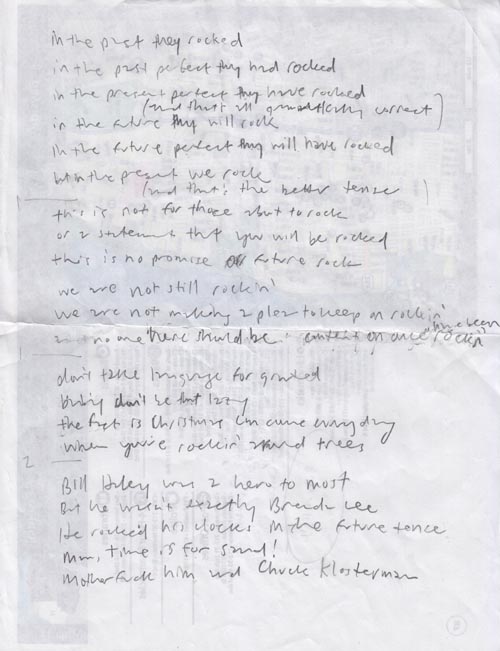 in the past they rocked
in the past perfect they had rocked
in the present perfect they have rocked
(and that's all grammatically correct)
in the future they will rock
in the future perfect they will have rocked
but in the present we rock
(and that's the better tense)
1
this is not for those about to rock
or a statement that you will be rocked
this is no promise of future rock
we are not still rockin'
we are not making a plea to keep on rockin'
and no one here should be content on once "have been rockin"
1
don't take language for granted
baby don't be that lazy
the fact is Christmas can come every day
when you're rockin' around trees
2
Bill Haley was a hero to most
But he wasn't exactly Brenda Lee
He rocked his clocks in the future tence
Man, time is for sand!
Motherfuck him and Chuck Klosterman
B